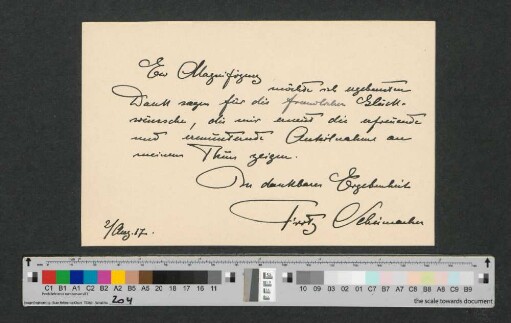 Ew Magnifizenz
möchte ich ergebensten
Dank sagen für die freundlichen Glück-
wünsche, die mir erneut die erfreuende
und ermunternde Anteilnahme an
meinem Thun zeigen.
In dankbarer Ergebenheit
Fritz Schumacher
2/Aug. 17.
C1 B1 A1 C2 B2 A2 B5 A5 20 18 17 16 11
10 09 03 02 01 C7 A7 C8 B8 A8 C9 B9
204
the scale towards document